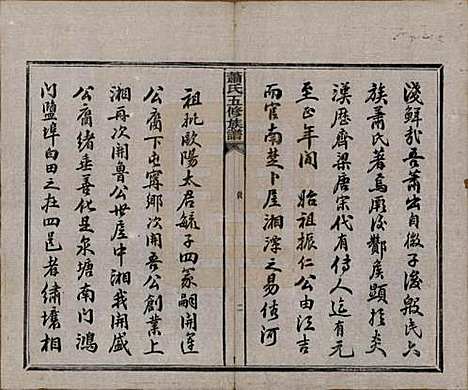 淺鮮哉吾蕭出自微子後殷民六
族蕭氏著焉厥後酇侯顯於炎
漢歷齊梁唐宋代有傳人迄有元
至正年間 始祖振仁公由江吉
而官南楚卜居湘潭之易俗河
蕭氏五修族譜
祖妣歐陽太君毓子四冢嗣開運
公裔下屯甯鄉次開吾公創業上
湘再次開魯公世居中湘我開盛
公裔緒垂善化是泉塘南門鴻
門鹽埠白田之在四邑者繡壤相